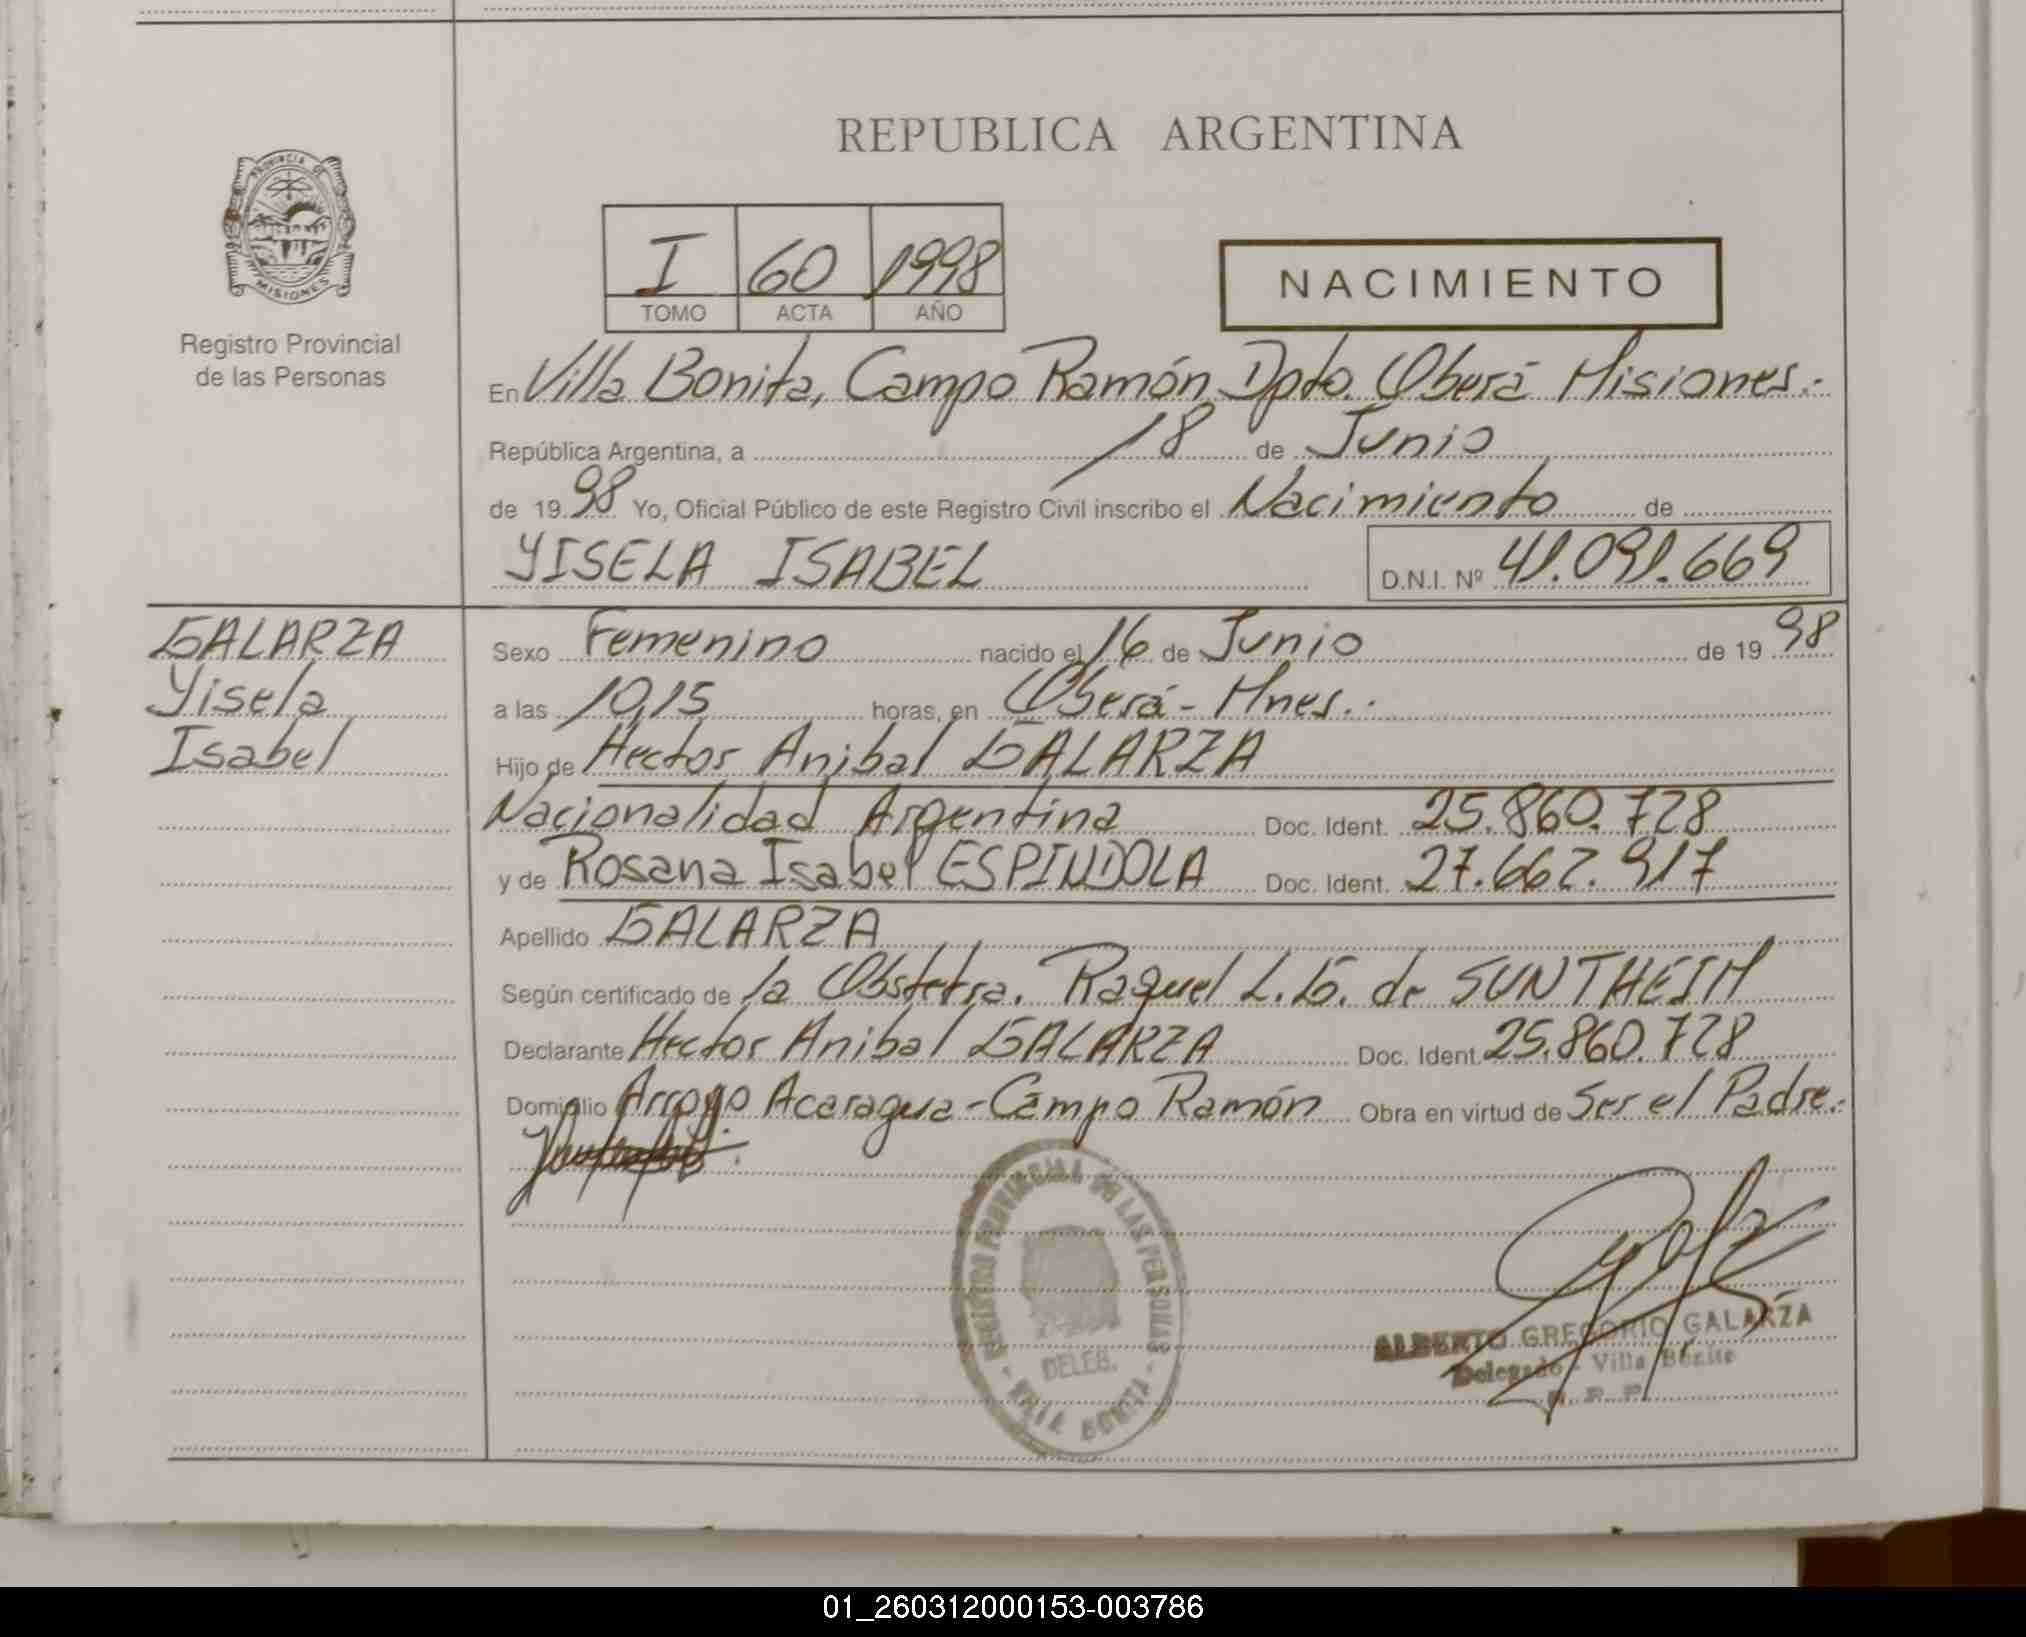 REPUBLICA ARGENTINA
PROVINCIA DE
MISIONES
Registro Provincial
de las Personas
I 60 1998
TOMO ACTA AÑO
NACIMIENTO
En Villa Bonita, Campo Ramón Dpto. Oberá Misiones.-
República Argentina, a 18 de Junio
de 1998 Yo, Oficial Público de este Registro Civil inscribo el Nacimiento de
YISELA ISABEL D.N.I. Nº 41.091.669
GALARZA
Yisela
Isabel
Sexo Femenino nacido el 16 de Junio de 1998
a las 10,15 horas, en Oberá - Mnes..
Hijo de Hector Anibal GALARZA
Nacionalidad Argentina Doc. Ident. 25.860.728
y de Rosana Isabel ESPINDOLA Doc. Ident. 27.662.917
Apellido GALARZA
Según certificado de la Obstetra. Raquel L. G. de SUNTHEIM
Declarante Hector Anibal GALARZA Doc. Ident. 25.860.728
Domicilio Arroyo Acaragua - Campo Ramón Obra en virtud de Ser el Padre.-
REGISTRO PROVINCIAL DE LAS PERSONAS
DELEG.
- VILLA BONITA -
ALBERTO GREGORIO GALARZA
Delegado - Villa Bonita
01_260312000153-003786